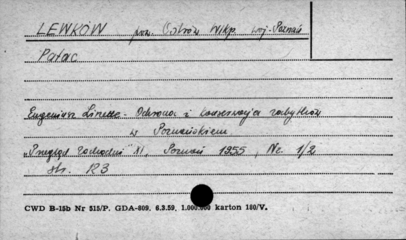 LEWKÓW pow. Ostrów Wlkp. woj. Poznań
Pałac
Eugeniusz Linette - Ochrona i konserwacja zabytków
w Poznańskiem
"Przegląd Zachodni" XI, Poznań 1955, Nr. 1/2
str.
CWD B-15b Nr 515/P. GDA-809, 6.3.59, 1.000.000 karton 180/V.